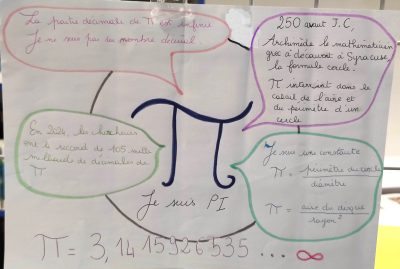 La partie décimale de π est infinie
Je ne suis pas un nombre décimal.
250 avant J.C,
Archimède le mathématicien
grec a découvert à Syracuse
la formule cercle.
π intervient dans le
calcul de l'aire et
du périmètre d'un
cercle
En 2024, les chercheurs
ont le record de 105 mille
milliards de décimales de
π
Je suis une constante
π = périmètre du cercle
diamètre
π = aire du disque
rayon²
Je suis PI
π = 3,1415926535 ... ∞